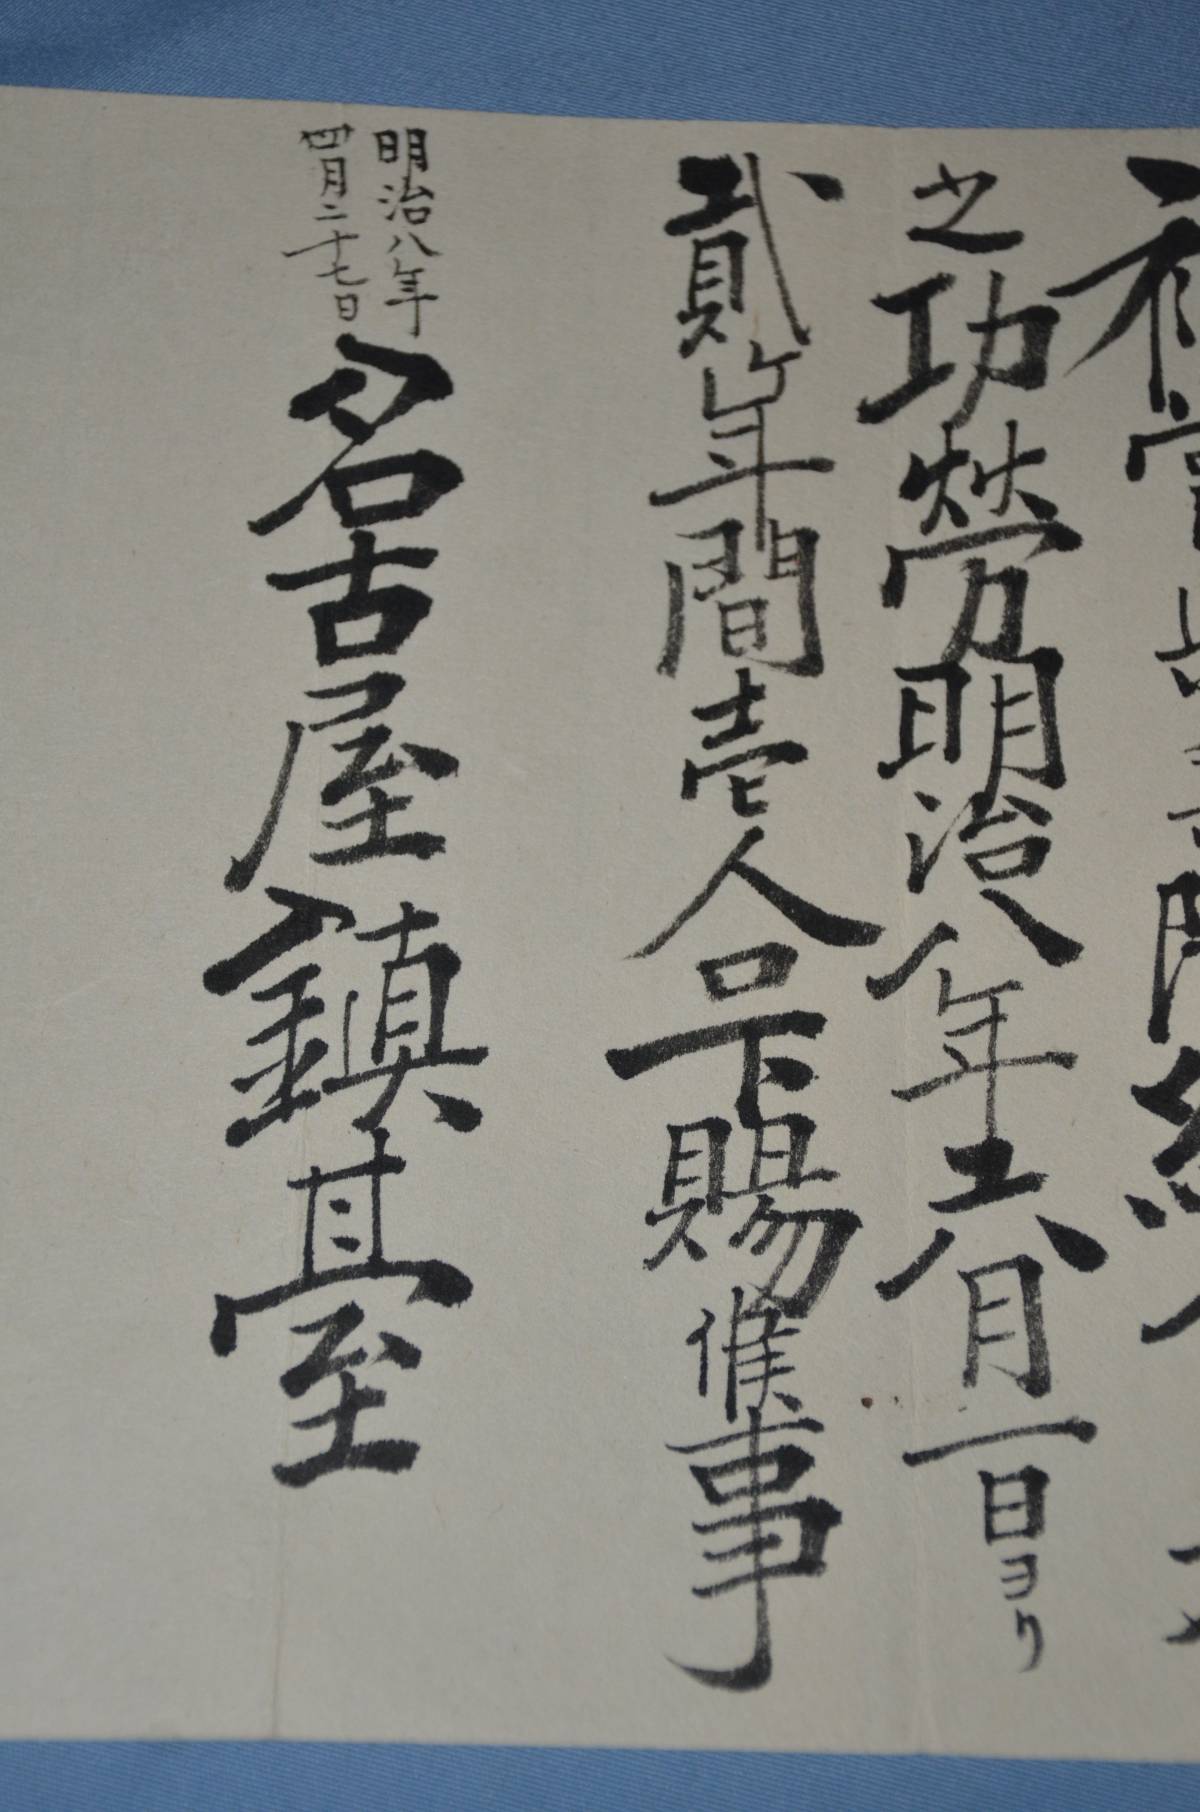 之功勞明治八年六月一日ヨリ
貳ケ年間壱人口下賜候事
明治八年
四月二十七日
名古屋鎮台